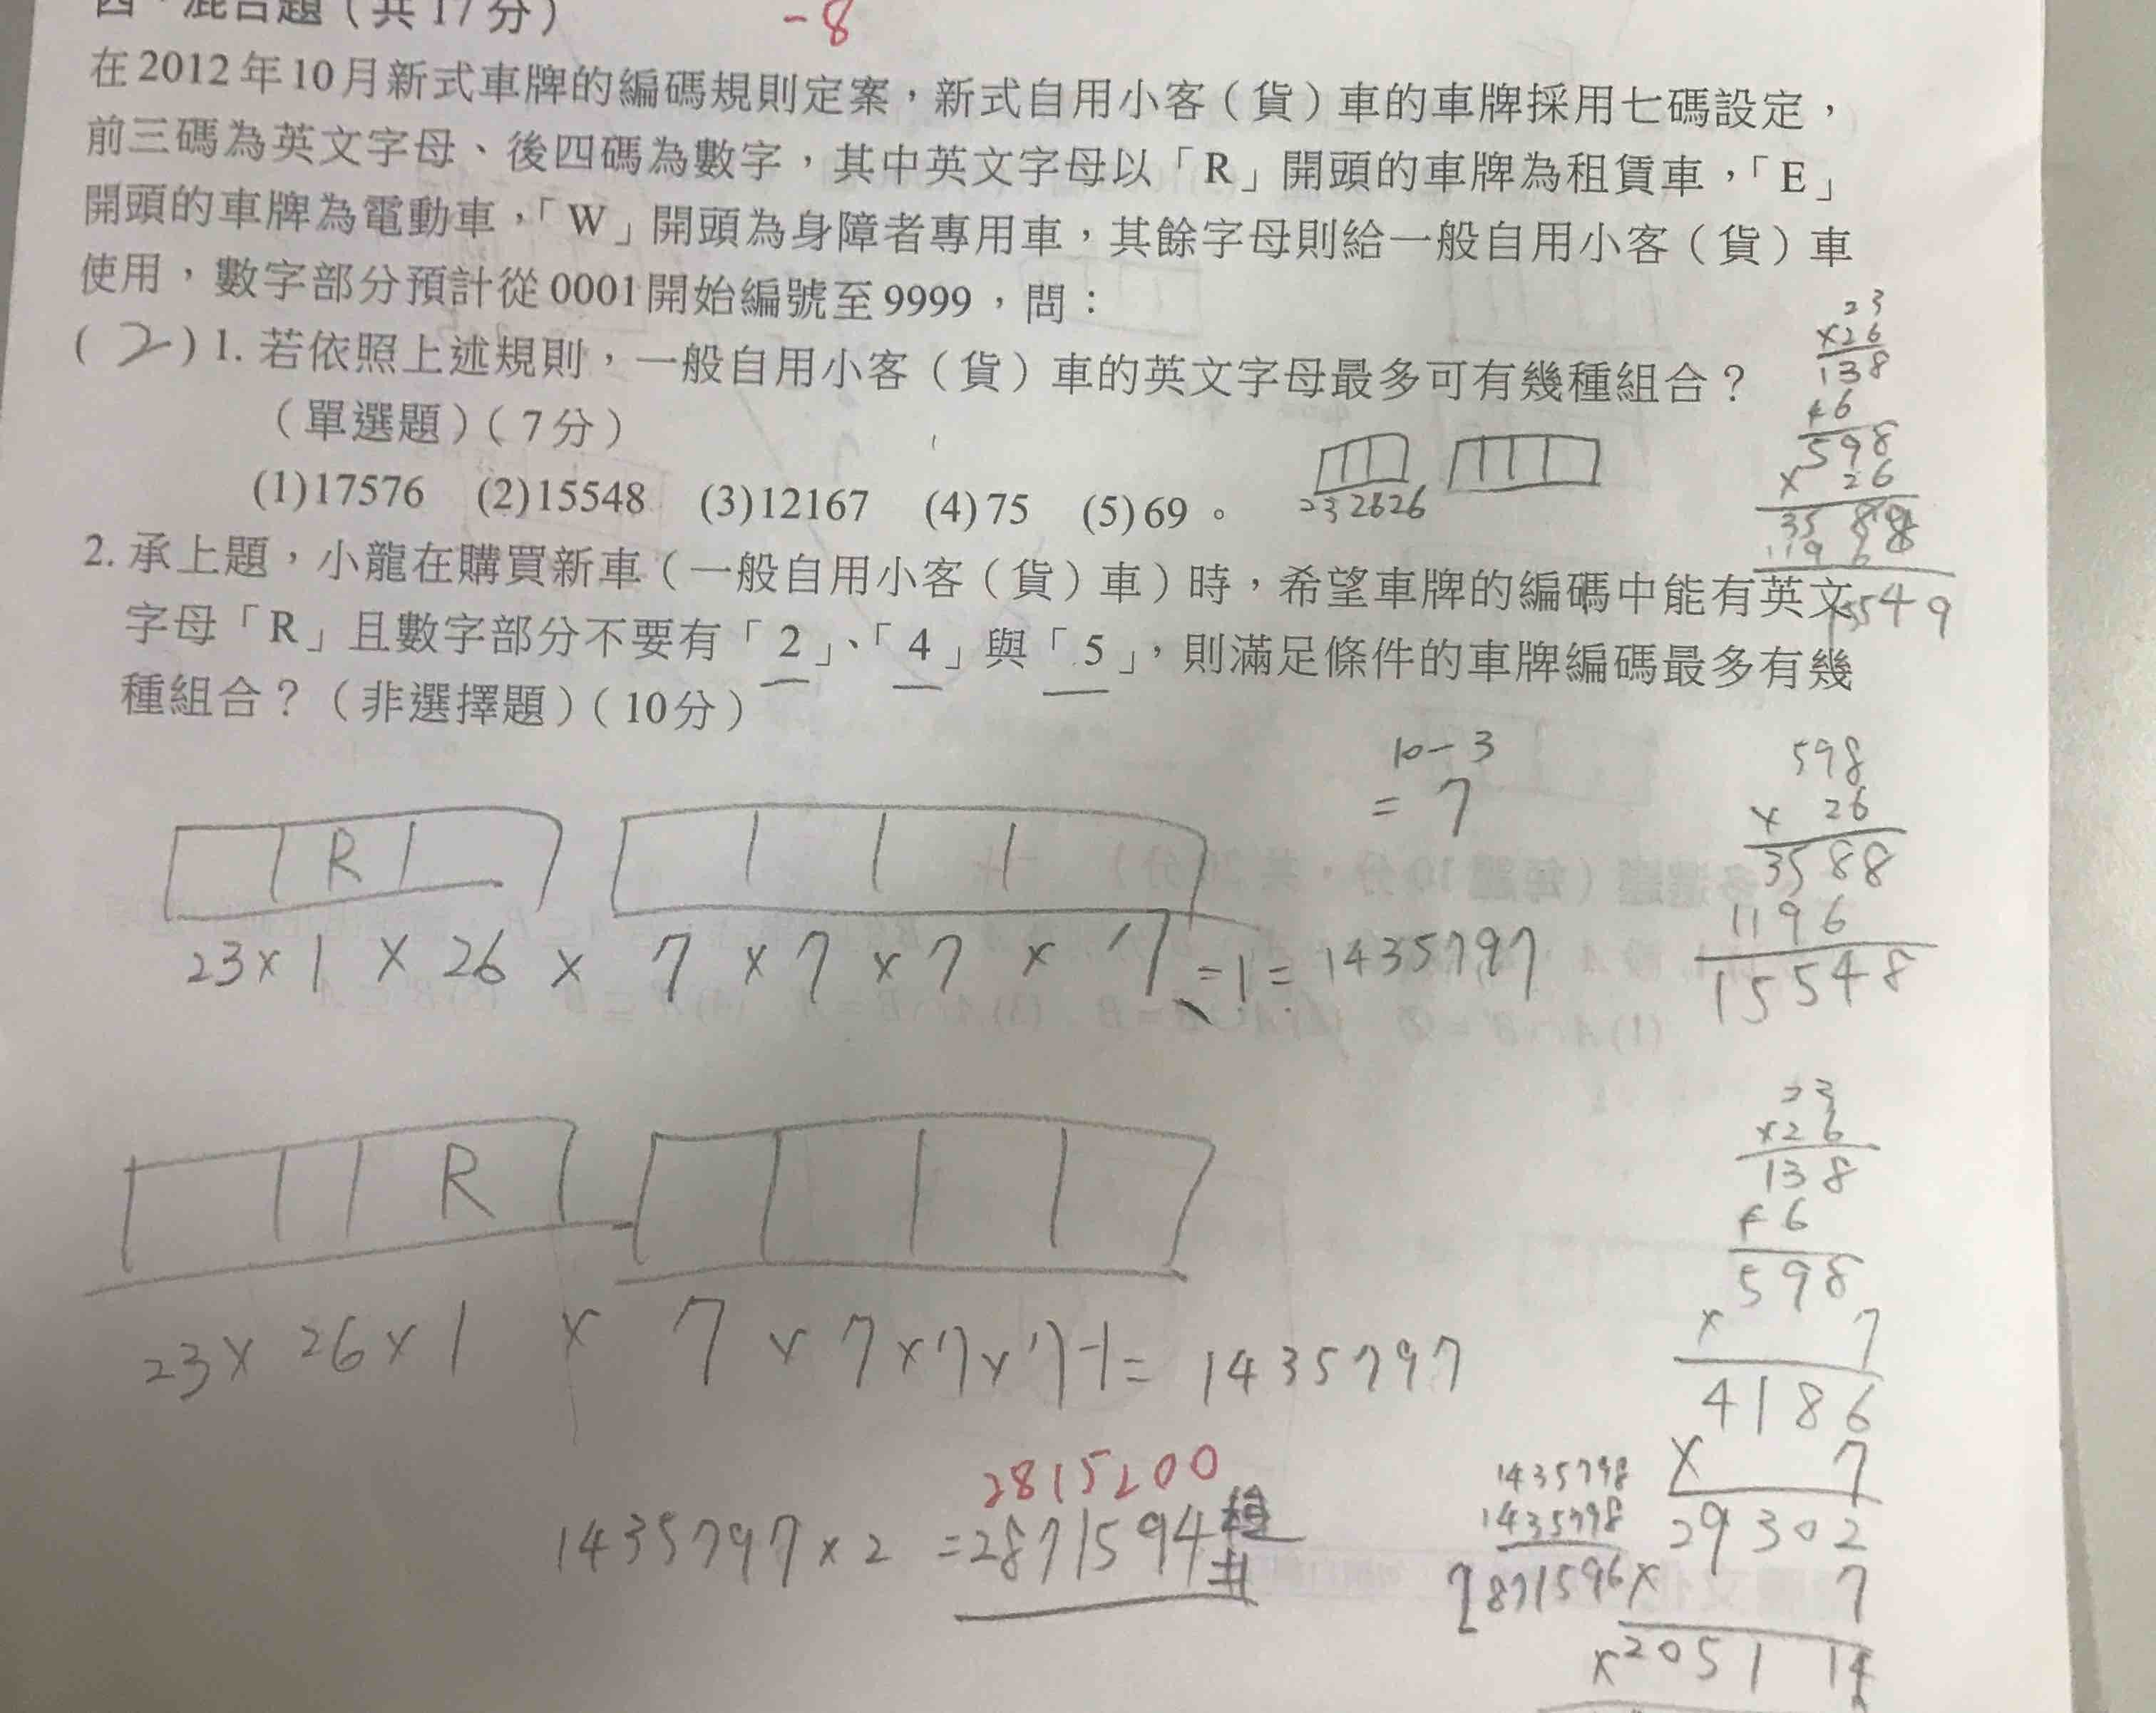 四、混合題（共17分）
-8
在2012年10月新式車牌的編碼規則定案，新式自用小客（貨）車的車牌採用七碼設定，
前三碼為英文字母、後四碼為數字，其中英文字母以「R」開頭的車牌為租賃車，「E」
開頭的車牌為電動車，「W」開頭為身障者專用車，其餘字母則給一般自用小客（貨）車
使用，數字部分預計從0001開始編號至9999，問：
(2)1. 若依照上述規則，一般自用小客（貨）車的英文字母最多可有幾種組合？
（單選題）（7分）
(1)17576 (2)15548 (3)12167 (4)75 (5)69。
23 26 26
23
×26
138
46
598
× 26
3588
1196
2. 承上題，小龍在購買新車（一般自用小客（貨）車）時，希望車牌的編碼中能有英文
字母「R」且數字部分不要有「2」、「4」與「5」，則滿足條件的車牌編碼最多有幾
種組合？（非選擇題）（10分）
10-3
= 7
598
× 26
3588
1196
15548
R
23×1 × 26 × 7 × 7 × 7 × 7 -1= 1435797
R
23× 26×1 × 7 × 7×7×7-1= 1435797
2815200
1435797×2 =2871594種
23
×26
138
46
598
× 7
4186
× 7
29302
× 7
205114
1435798
1435798
2871596